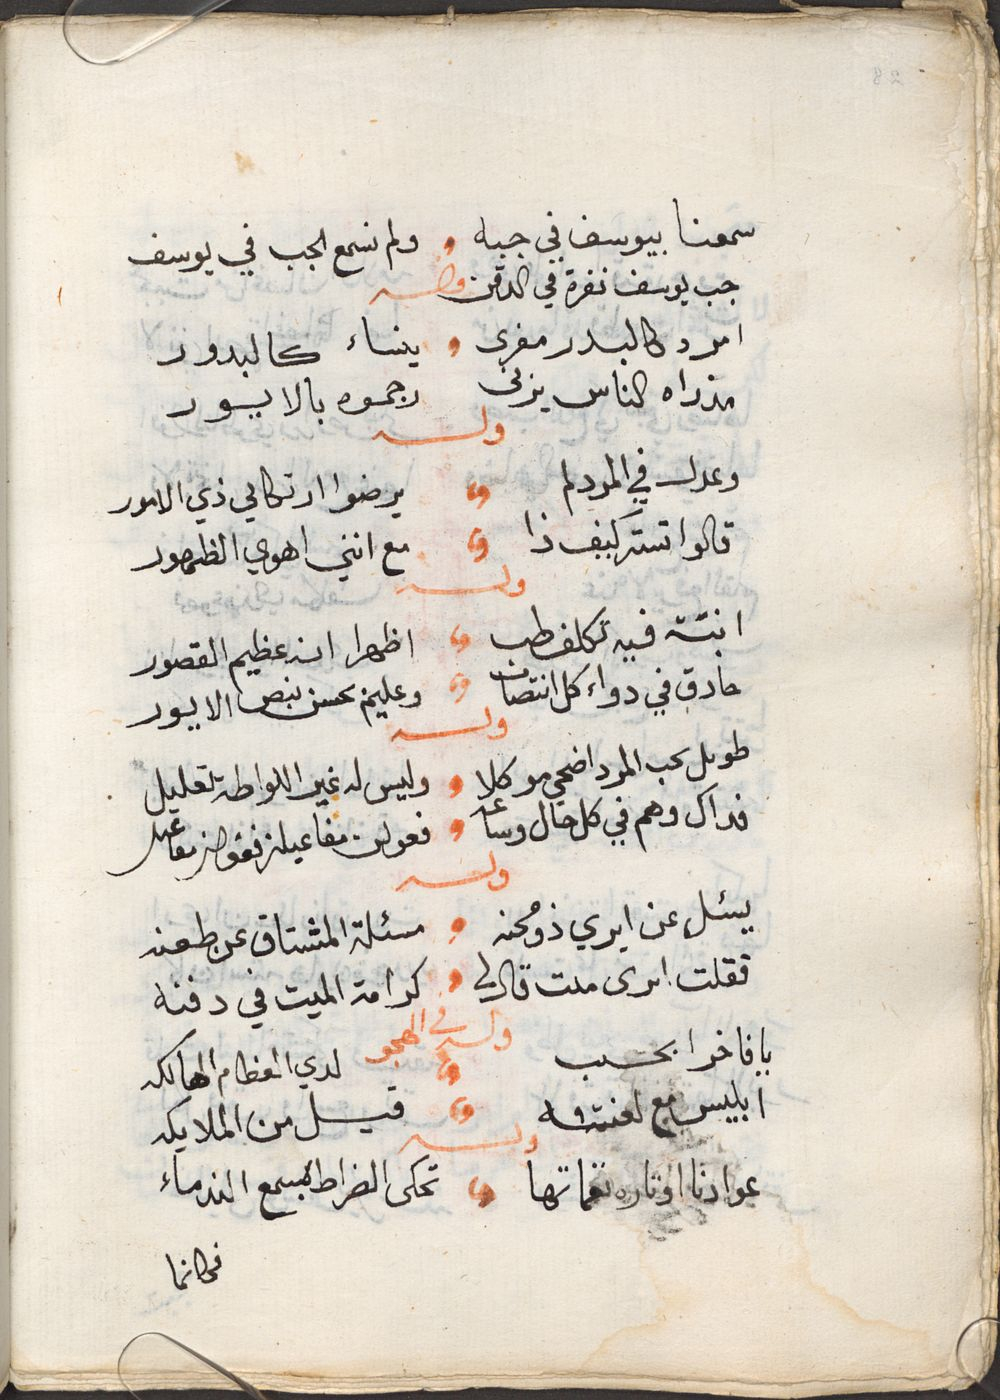 سمعنا بيوسف في جبه ولم نسمع الجب في يوسف
جب يوسف نفرة في الذقن
امرد كالبدر مغرى بنساء كالبدور
مذراه الناس يزنى رجموه بالايور
وله
وعدلــ في المرد لم يرضوا ارتكابي ذي الامور
قالوا تستر كيف ذا مع انني اهوي الظهور
وله
ابنتة فيه تكلف طب اظهرا انه عظيم القصور
حاذق في دواء كل انتصاب وعليم بحسن نبض الايور
وله
طويل بحب المرد اضحي موكلا وليس له غير اللواطة تعليل
فذاك وهم في كل حال وساعة فعولن مفاعيلن فعولن مفاعيل
وله
يسئل عن ايري ذو محنه مسئلة المشتاق عن طعنه
فقلت ايرى ميت قال لي كرامة الميت في دفنه
وله في الهجو
يا فاخرا بحسب لدي العظام الهالكه
ابليس مع لعنته قيل من الملايكه
وله
عوادنا اوتاره نغماتها تحكى الضراط بمسمع الندماء
فكانما